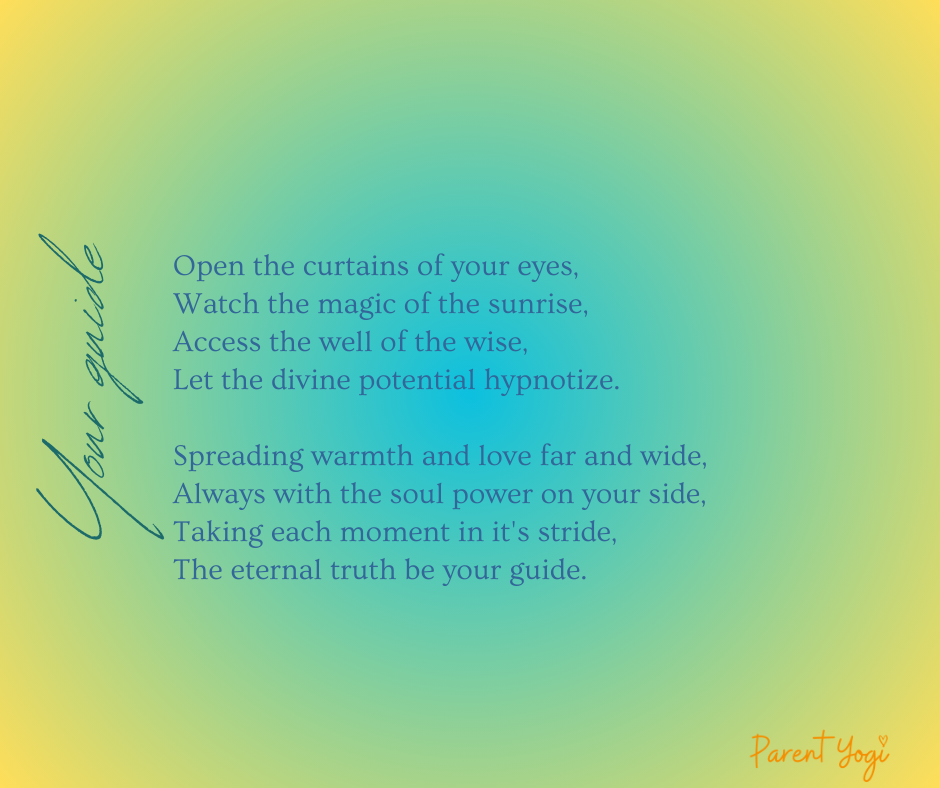 Your guide
Open the curtains of your eyes,
Watch the magic of the sunrise,
Access the well of the wise,
Let the divine potential hypnotize.
Spreading warmth and love far and wide,
Always with the soul power on your side,
Taking each moment in it's stride,
The eternal truth be your guide.
Parent Yogi